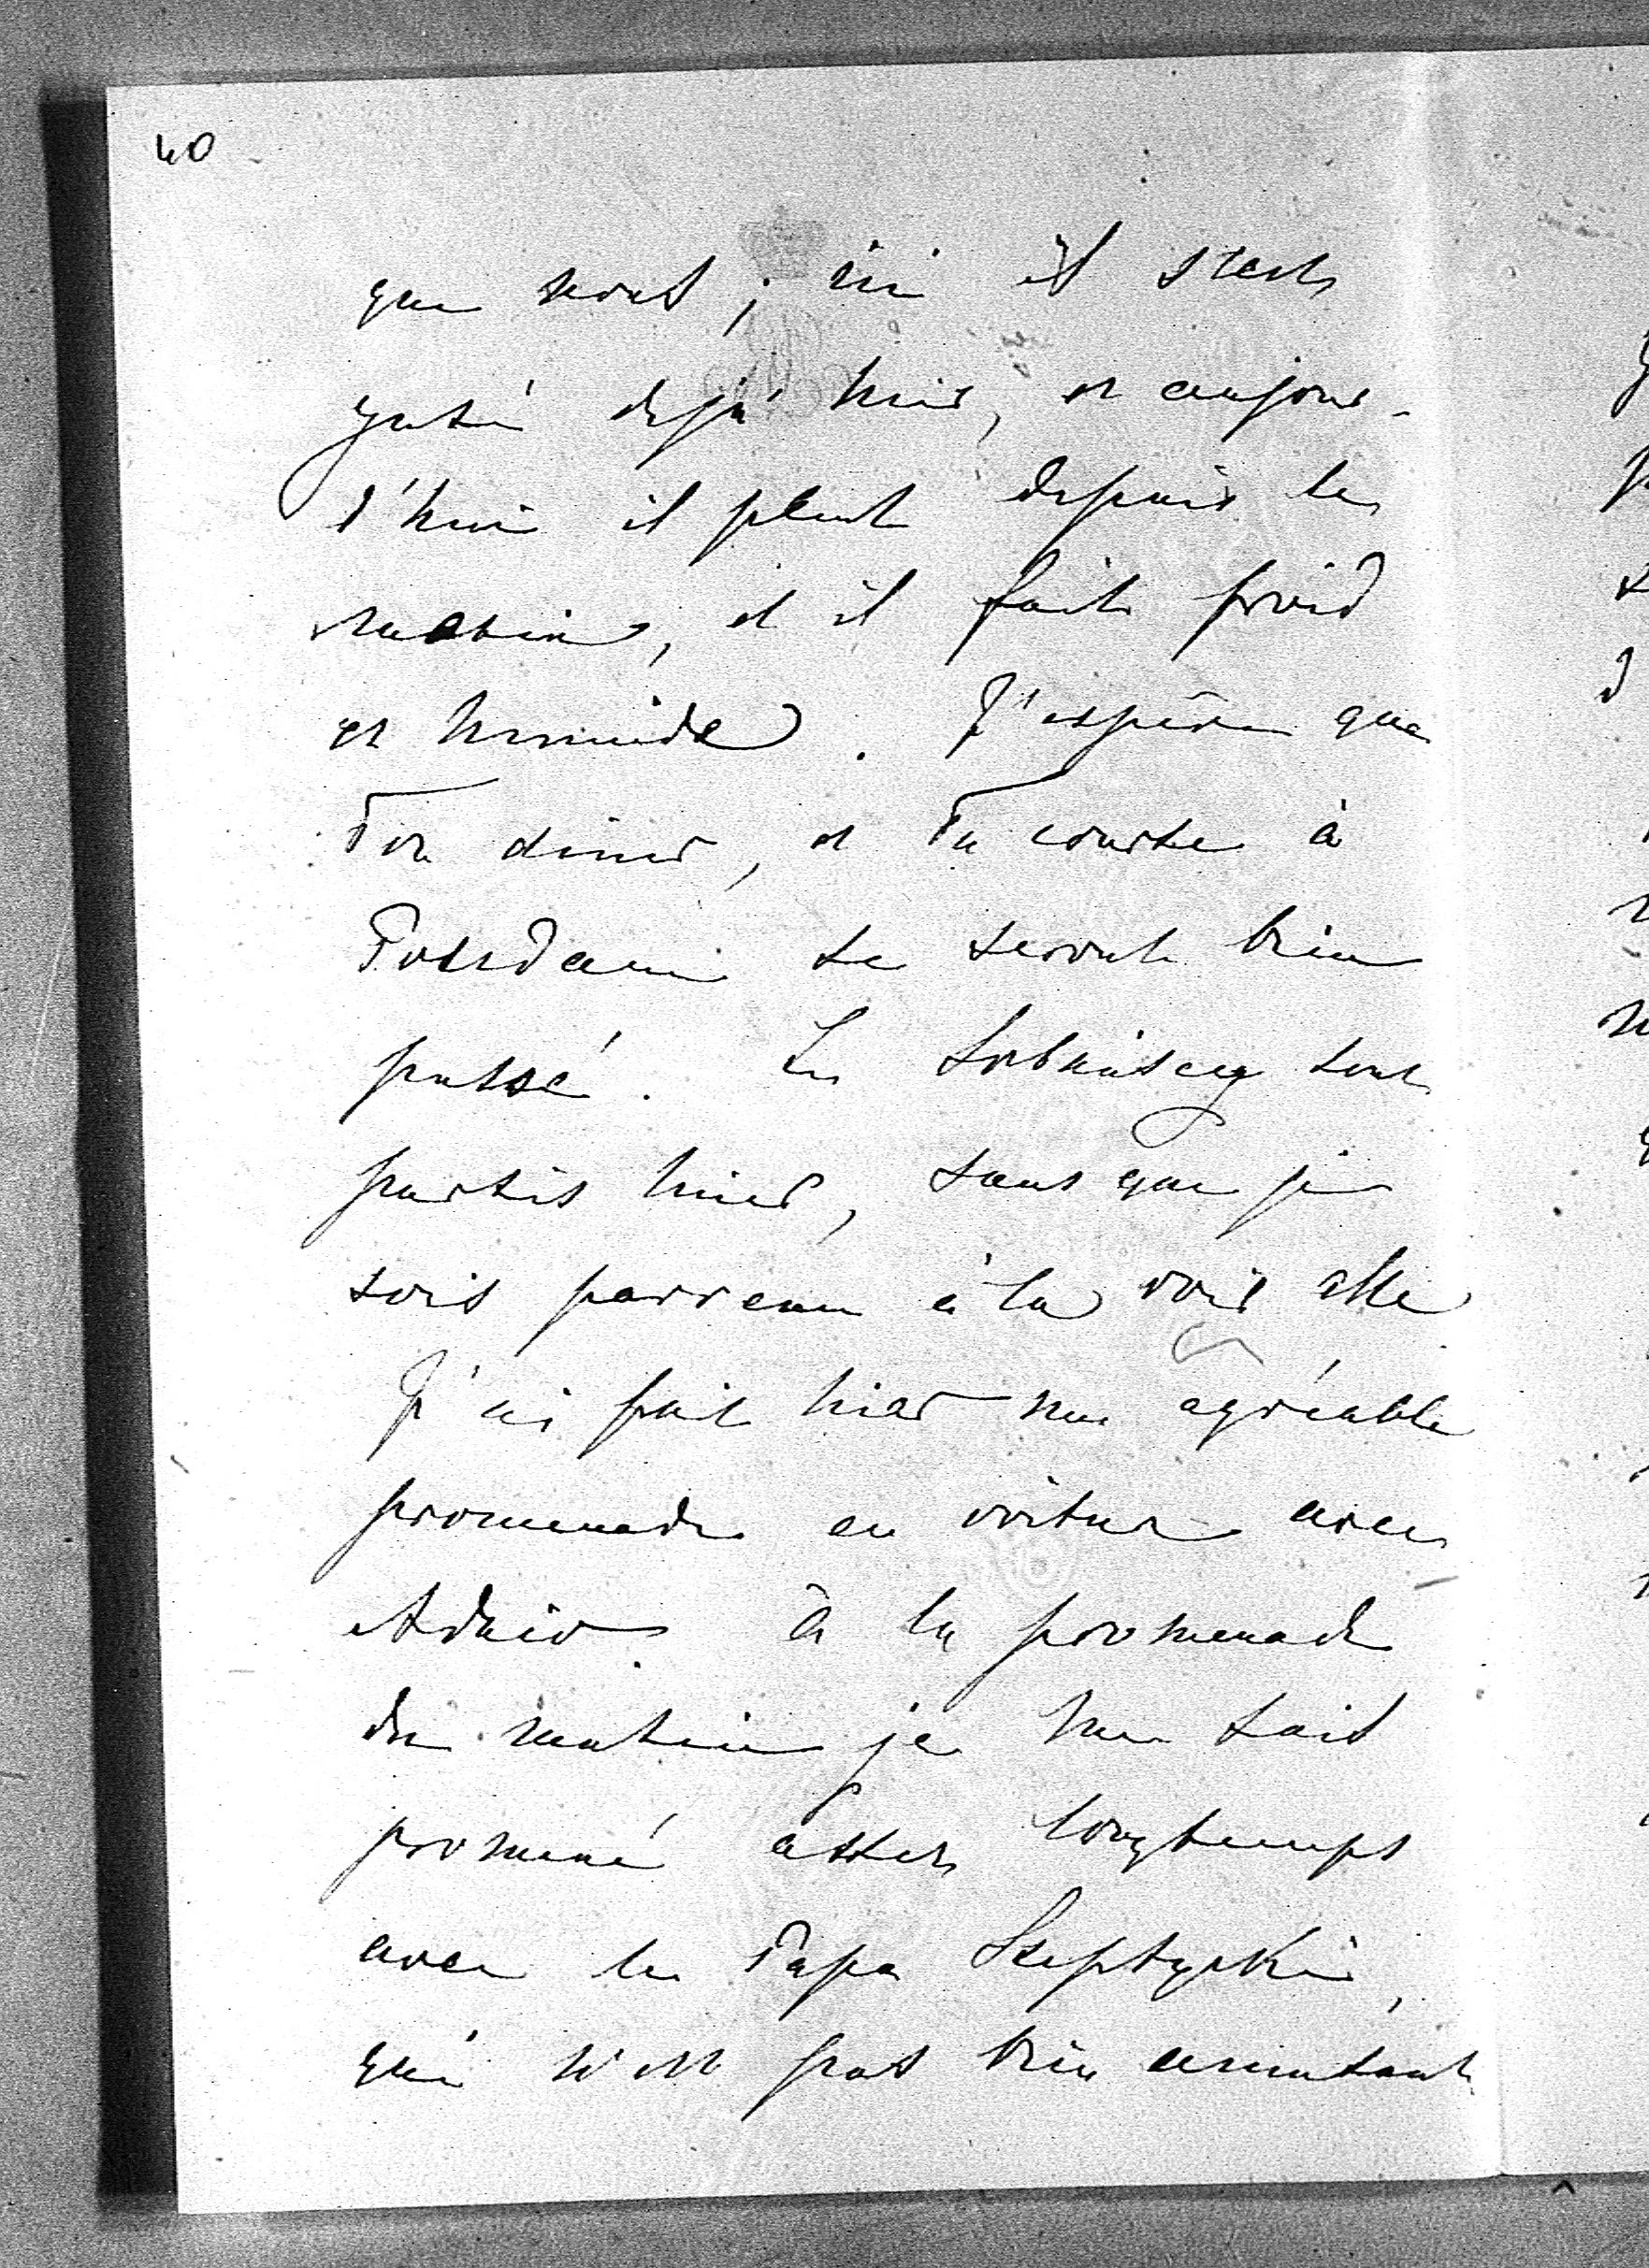 40
que nous; ici il s'est
gâté déjà hier, et aujour-
d'hui il pleut depuis le
matin, et il fait froid
et humide. J'espère que
Ton diner, et Ta course à
Potsdam se seront bien
passé. Les sont
partis hier, sans que je
sois parvenu à la voir elle
J'ai fait hier une agréable
promenade en voiture avec
à la promenade
du matin je me suis
promené assez longtemps
avec le Papa Szeptycki,
qui n'est pas bien amusant